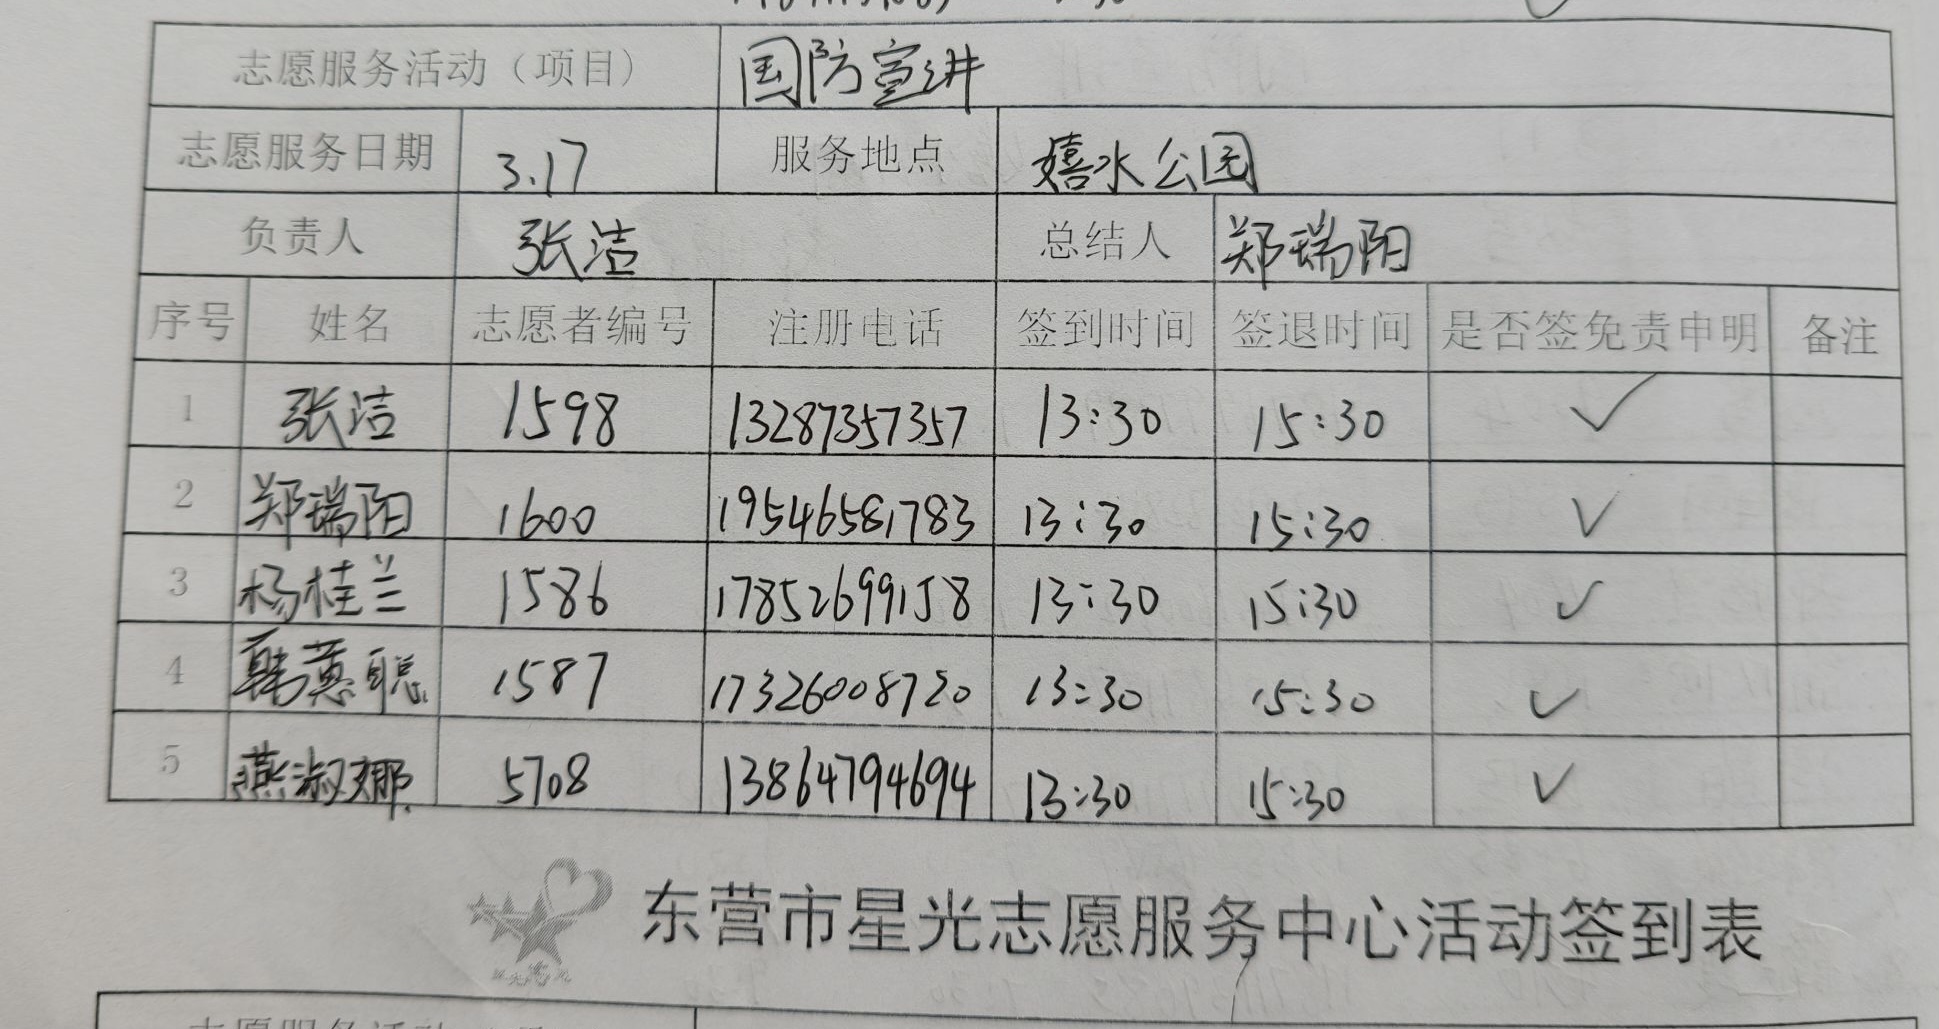 志愿服务活动（项目） 国防宣讲
志愿服务日期 3.17 服务地点 嬉水公园
负责人 张洁 总结人 郑瑞阳
序号 姓名 志愿者编号 注册电话 签到时间 签退时间 是否签免责申明 备注
1 张洁 1598 13287357357 13:30 15:30 ✓
2 郑瑞阳 1600 19546581783 13:30 15:30 ✓
3 杨桂兰 1586 17852699158 13:30 15:30 ✓
4 韩蕙聪 1587 17326008720 13:30 15:30 ✓
5 燕淑娜 5708 13864794694 13:30 15:30 ✓
东营市星光志愿服务中心活动签到表